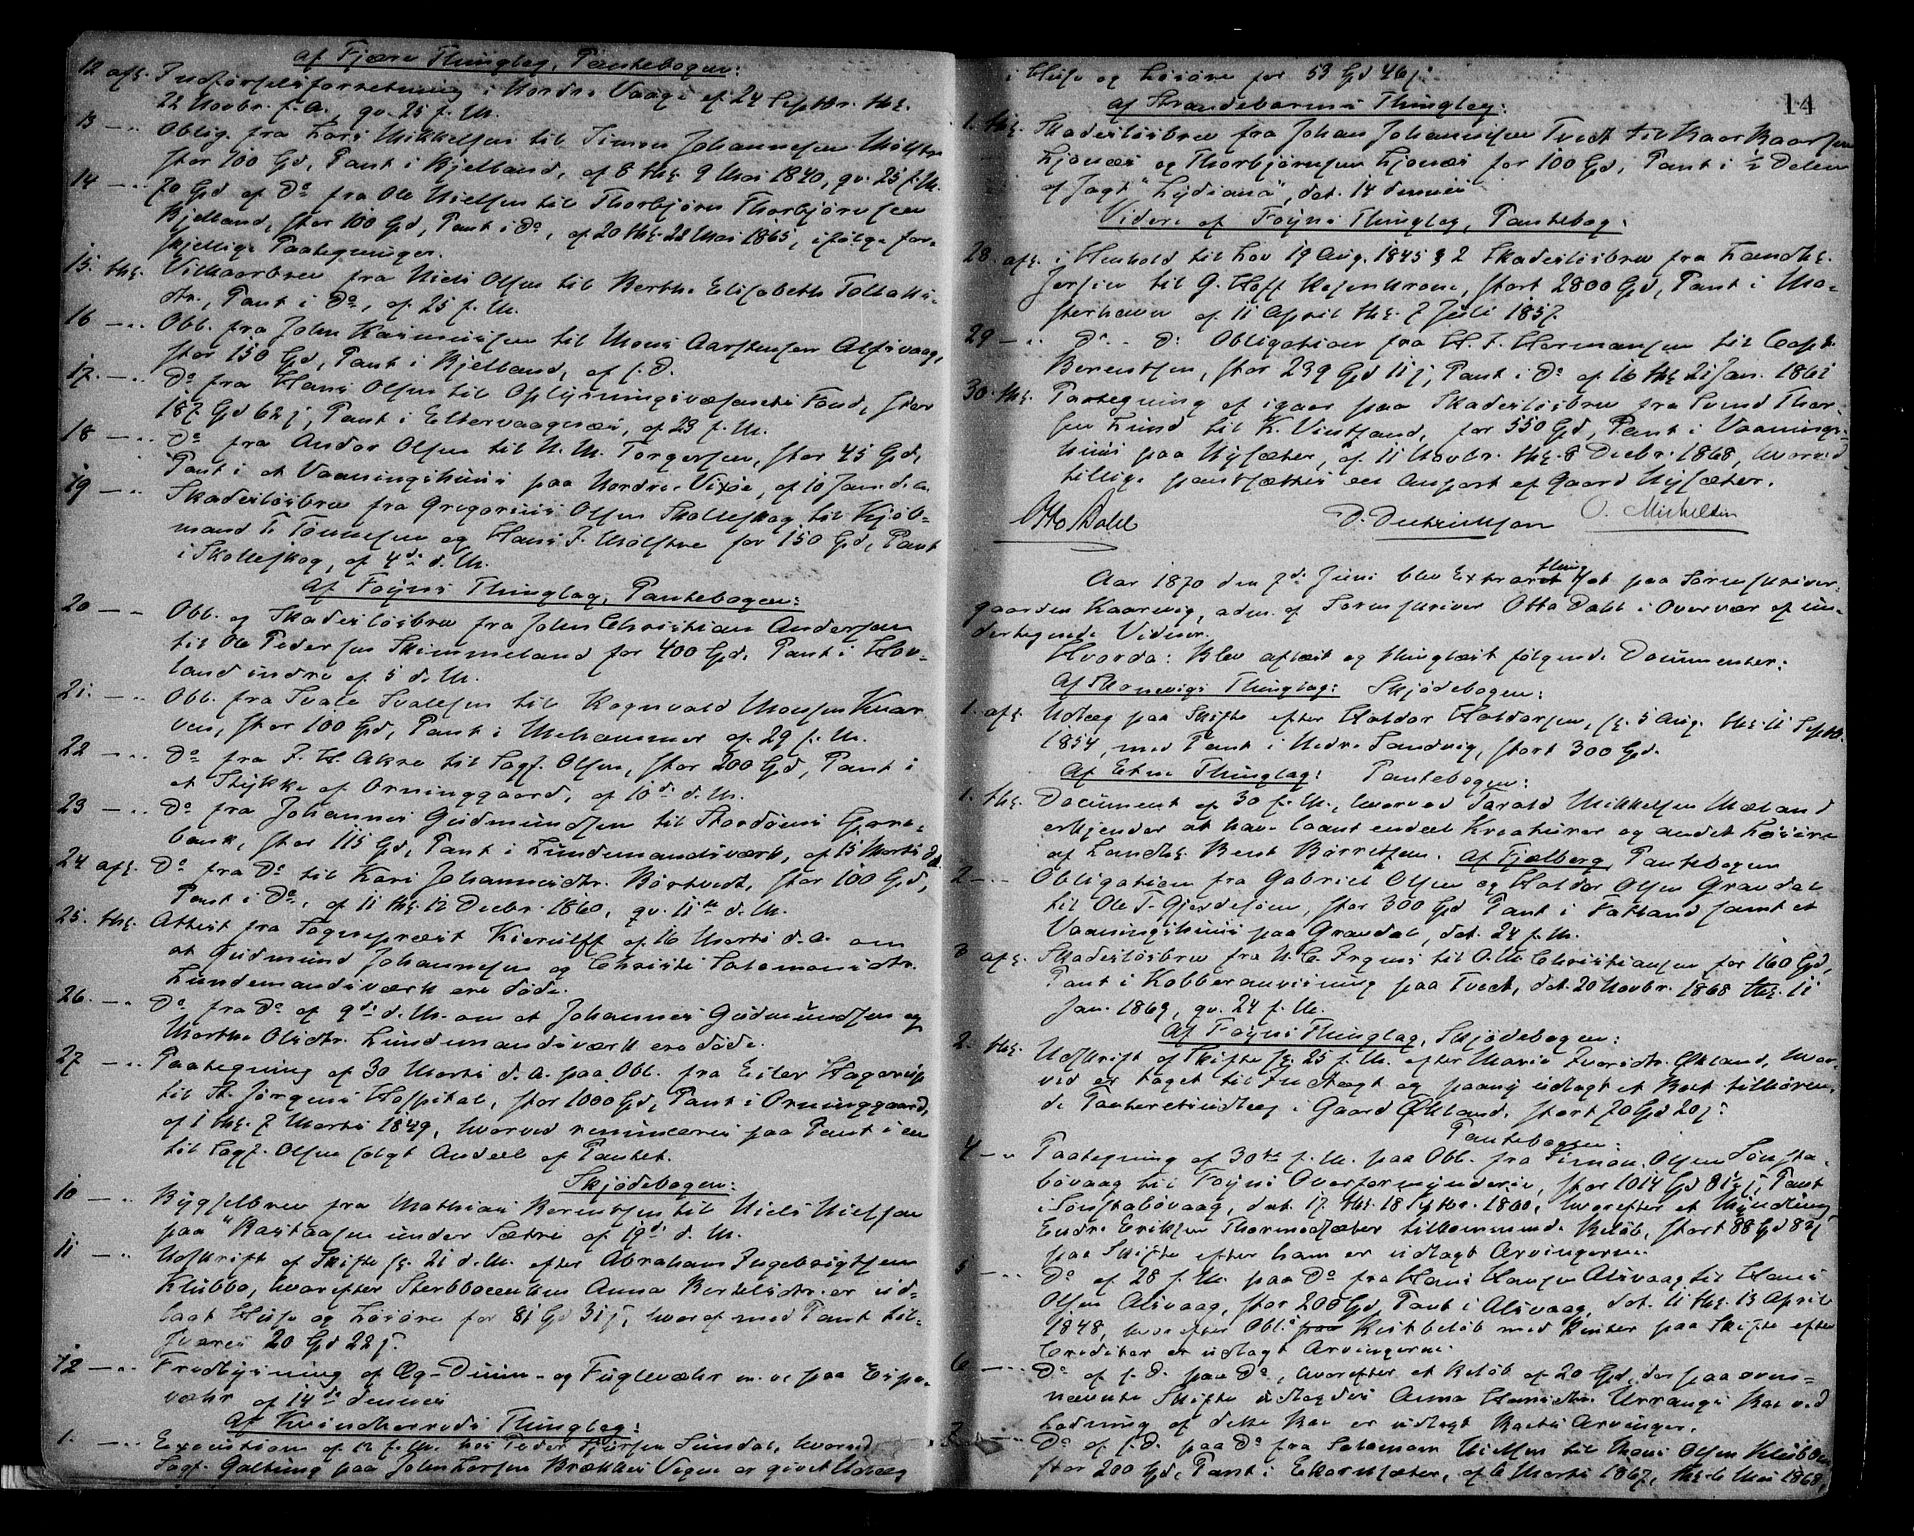 af Fjære Thinglag, Pantebogen:
12 afl. Indførselsforretning i Nordre Vaage af 24 Septbr. thl.
22 Novbr. f. A., qv. 25 f. M.
13 — „ Oblig. fra Lars Mikkelsen til Simon Johannesen Mølstre
stor 100 Spd, Pant i Bjelland, af 8 thl. 9 Mai 1840, qv. 25 f. M.
14 — „ 70 Spd af Do fra Ole Nielsen til Thorbjørn Thorbjørnsen
Bjelland, stor 100 Spd, Pant i Do, af 20 thl. 22 Mai 1865, ifølge for-
skjellige Paategninger.
15. thl. Vilkaarbrev fra Niels Olsen til Berthe Elisabeth Tollaks-
dtr., Pant i Do, af 25 f. M.
16 — „ Obl. fra John Rasmussen til Mons Aarstensen Alfsvaag,
stor 150 Spd, Pant i Bjelland, af s. D.
17. — „ Do fra Hans Olsen til Oplysningsvæsenets Fond, stor
187 Spd 62 s, Pant i Eltervaagnæs, af 23 f. M.
18 — „ Do fra Andor Olsen til N. M. Torgersen, stor 45 Spd,
Pant i et Vaaningshuus paa Nordre Vixøe, af 10 Jan. d. A.
19 — „ Skadesløsbrev fra Gregorius Olsen Skolleskog til Kjøb-
mand T. Tønnesen og Hans J. Mølstre for 150 Spd, Pant
i Skolleskog, af 4de d. M.
Af Føyns Thinglag, Pantebogen:
20 — „ Obl. og Skadesløsbrev fra John Christian Andersen
til Ole Pedersen Skimmeland for 400 Spd. Pant i Hov-
land indre af 5 d. M.
21. — „ Obl. fra Svale Svalesen til Rognvald Monsen Knar-
ven, stor 100 Spd, Pant i Mehammer af 29 f. M.
22 — „ Do fra J. H. Akre til Sagf. Olsen, stor 200 Spd, Pant i
et Stykke af Orninggaard, af 10d d. M.
23 — „ Do fra Johannes Gudmundsen til Stordøens Spare-
bank, stor 115 Spd, Pant i Lundemandsværk, af 15 Marts d. A.
24 afl. Do fra Do til Kari Johannesdtr. Børtvedt, stor 100 Spd,
Pant i Do, af 11 thl. 12 Decbr. 1860, qv. 11te d. M.
25. thl. Attest fra Sognepræst Kierulff af 16 Marts d. A. om
at Gudmund Johannesen og Christi Salomonsdtr.
Lundemandsværk ere døde.
26. — „ Do fra Do af 9de d. M. om at Johannes Gudmundsen og
Marthe Olsdtr. Lundemandsværk ere døde.
27 — „ Paategning af 30 Marts d. A. paa Obl. fra Eiler Hagerup
til St. Jørgens Hospital, stor 1000 Spd, Pant i Orninggaard,
af 1 thl. 7 Marts 1849, hvorved renunceres paa Pant i en
til Sagf. Olsen solgt Andeel af Pantet.
Skjødebogen:
10 — „ Bygselbrev fra Mathias Berentsen til Niels Nielsen
paa "Rastaasen under Sætre af 19d d. M.
11 — „ Udskrift af Skifte sl. 21 d. M. efter Abraham Ingebrigtsen
Klubbo, hvorefter Sterbboenken Anna Bertelsdtr. er ud-
lagt Huse og Løsøre for 81 Spd 31 s, hvoraf med Pant til-
svares 20 Spd 22 s.
12 — „ Fredlysning af Æg-Duun- og Fuglevæhr m. v. paa Espe-
væhr af 14de dennes
Af Kvindherreds Thinglag:
1. — „ Execution af 12 f. M. hos Peder Sjursen Sundal, hvorved
Sagf. Galtung paa John Larsen Brækkes Vegne er givet Udlæg
14
i Huse og Løsøre for 53 Spd 46 s:
af Strandebarms Thinglag:
1. thl. Skadesløsbrev fra Johan Johannesen Tvedt til Baar Baarsen
Ljonæs og Thorbjørnsen Ljonæs for 100 Spd, Pant i ½ Delen
af Jagt "Lydiana", dat. 14 dennes
Videre af Føyns Thinglag, Pantebog:
28. afl. i Henhold til Lov 19 Aug. 1845 § 2 Skadesløsbrev fra Landhl.
Jersin til G. Hoff Rosenkrone, stort 2800 Spd, Pant i Mo-
sterhavn af 11 April thl. 7 Juli 1857.
29 — „ Do - Do Obligation fra H. J. Hermansen til Capt.
Berentsen, stor 239 Spd 11 s, Pant i Do af 16 thl. 21 Jan. 1861
30. thl. Paategning af igaar paa Skadesløsbrev fra Svend Thor-
sen Lund til K. Vestrand, for 550 Spd, Pant i Vaanings-
huus paa Nysæter, af 11 Novbr. thl. 8 Decbr. 1868, hvorved
tillige pantsættes en Anpart af Gaard Nysæter.
Otto Dahl D. Didrichsen O. Mickelsen
Aar 1870 den 7d Juni blev Extraret thing sat paa Sorenskriver-
gaarden Kaarevig, adm. af Sorenskriver Otto Dahl i Overvær af un-
dertegnede Vidner.
Hvorda: Blev aflæst og thinglæst følgende Documenter:
Af Skonevigs Thinglag: Skjødebogen:
1. afl. Udlæg paa Skifte efter Haldor Haldorsen, sl. 5 Aug. thl. 11 Septbr.
1854, med Pant i Nedre Sandvig, stort 300 Spd.
Af Etne Thinglag: Pantebogen:
1. thl. Document af 30 f. M., hvorved Tarald Mikkelsen Mæland
erkjender at have laant endeel Kreaturer og andet Løsøre
af Landhl. Bent Børretsen. Af Fjelberg, Pantebogen
2 — „ Obligation fra Gabriel Olsen og Haldor Olsen Gravdal
til Ole T. Gjerdesøen, stor 300 Spd Pant i Fatland samt et
Vaaningshuus paa Gravdal, dat. 24 f. M.
3 afl. Skadesløsbrev fra N. C. Irgens til O. M. Christiansen for 160 Spd,
Pant i Kobberanvisning paa Tvedt, dat. 20 Novbr. 1868 thl. 11
Jan. 1869, qv. 24 f. M.
Af Føyns Thinglag, Skjødebogen:
2. thl. Udskrift af Skifte sl. 25 f. M. efter Marie Iversdtr. Økland, hvor-
ved er taget til Indtægt og paany udlagt et Boet tilhøren-
de Panteretsudlæg i Gaard Økland, stort 70 Spd 20 s:
Pantebogen:
4 — „ Paategning af 30te f. M. paa Obl. fra Simon Olsen Sønsta-
bøvaag til Føyns Overformynderie, stor 1014 Spd 81½ s, Pant
i Sønstabøvaag, dat. 17. thl. 18 Septbr. 1860, hvorefter et Myndling
Endre Eriksen Thormodsæter tilkommende Beløb, stort 88 Spd 82 s
paa Skifte efter ham er udlagt Arvingerne.
5 — „ Do af 28 f. M. paa Do fra Hans Hansen Alsvaag til Hans
Olsen Alsvaag, stor 200 Spd, Pant i Alsvaag, dat. 11 thl. 13 April
1848, hvorefter Obl.s Restbeløb med Renter paa Skifte efter
Creditor er udlagt Arvingerne.
6 — „ Do af s. D. paa Do, hvorefter et Beløb af 20 Spd, der paa oven-
nævnte Skifte udlagdes Anna Hansdtr. Urrangs Bo ved
Ladning af dette Bo er udlagt Boets Arvinger.
7 — „ Do af s. D. paa Do fra Salamon Nielsen til Hans Olsen Klubben
stor 200 Spd, Pant i Ekornsæter, af 6 Marts 1867, thl. 6 Mai 1868,